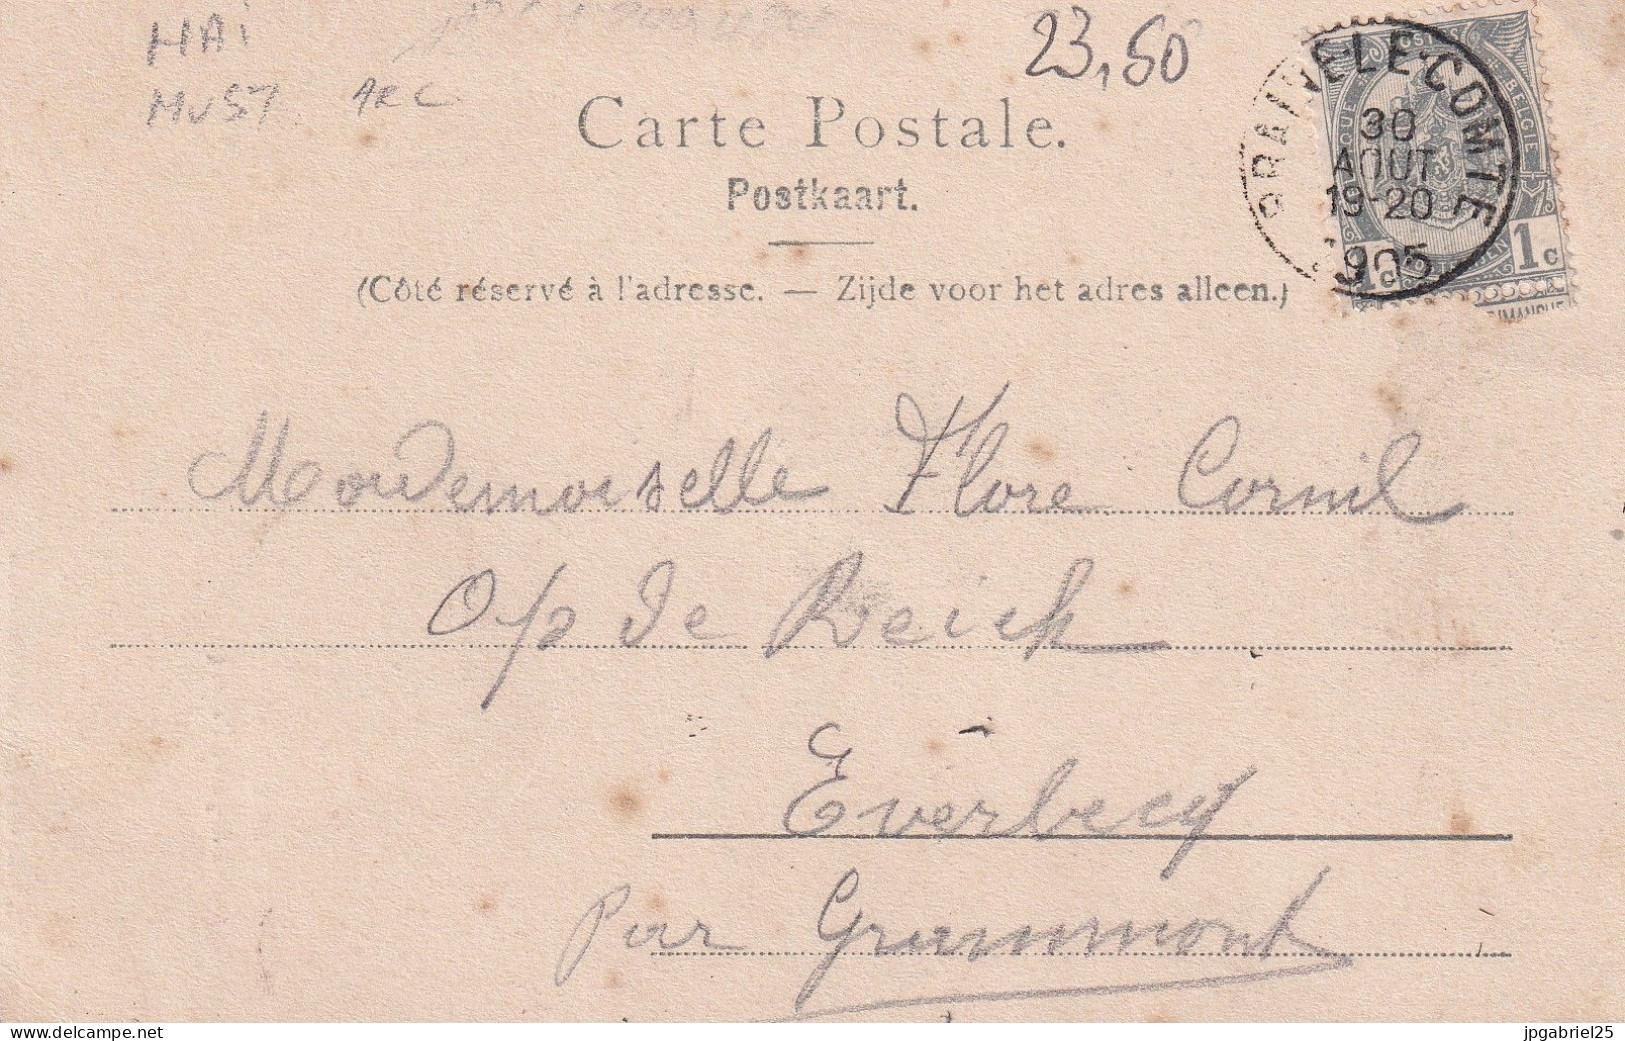 HAI
MUST ARC
23,50
Carte Postale.
Postkaart.
(Côté réservé à l'adresse. — Zijde voor het adres alleen.)
BRAINE-LE-COMTE
30
AOUT
19-20
1905
BELGIE
1c 1c
Mademoiselle Flore Cornil
Op de Reick
Everbecq
par Grammont
delcampe.net
jpgabriel25